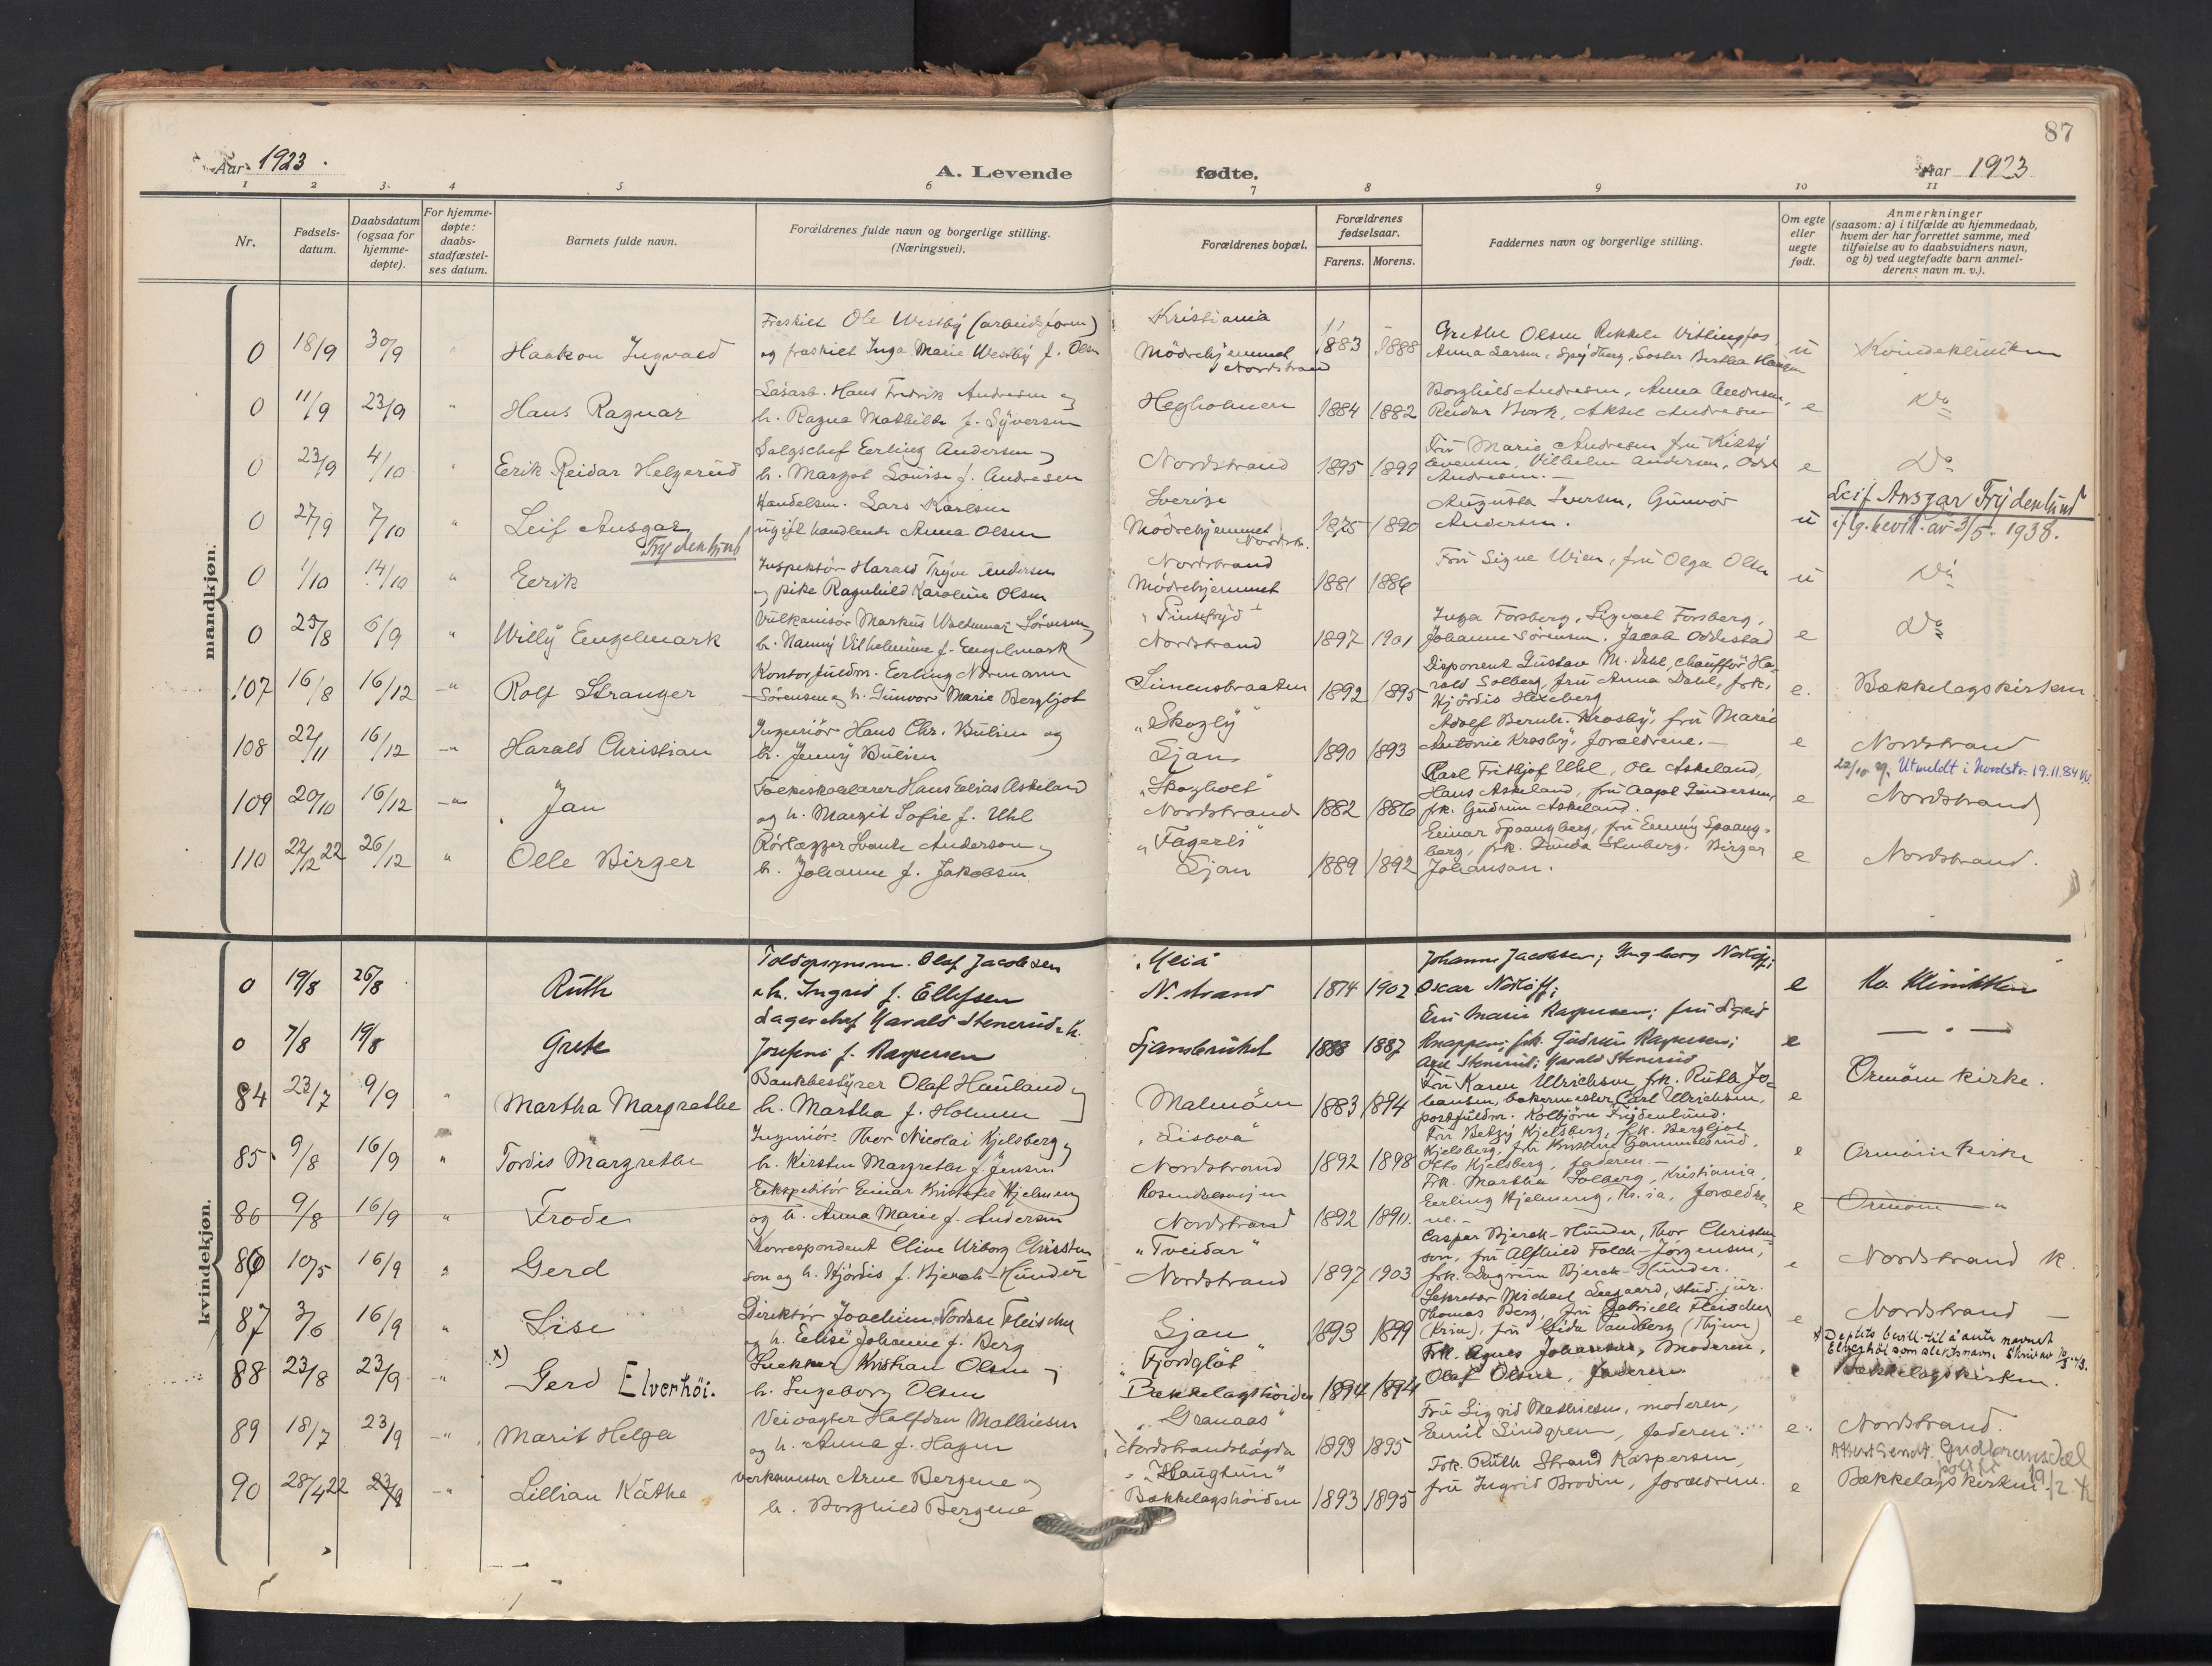 87
Aar 1923.
A. Levende
fødte.
Aar 1923
1 2 3 4 5 6 7 8 9 10 11
Nr.
Fødsels-
datum.
Daabsdatum
(ogsaa for
hjemme-
døpte).
For hjemme-
døpte:
daabs-
stadfæstel-
ses datum.
Barnets fulde navn.
Forældrenes fulde navn og borgerlige stilling.
(Næringsvei).
Forældrenes bopæl.
Forældrenes
fødselsaar.
Farens. Morens.
Faddernes navn og borgerlige stilling.
Om egte
eller
uegte
født.
Anmerkninger
(saasom: a) i tilfælde av hjemmedaab,
hvem der har forrettet samme, med
tilføielse av to daabsvidners navn,
og b) ved uegtefødte barn anmel-
derens navn m. v.).
mandkjøn.
Fraskilt Ole Westby (arbeidsform) Kristiania
0 18/9 30/9 " Haakon Ingvald og fraskilt Inga Marie Westby f. Olsen Mödrehjemmet 1883 1888 Grethe Olsen
Nordstrand Anna Larsen, Söster Bertha u Kvindeklinikken
0 11/9 23/9 " Hans Ragnar Hans Fredrik Andresen og
h. Ragna Mathilde f. Syversen Hegholmen 1884 1882 Borghild Andresen, Anna Andresen,
Reidar Bork, Aksel Andresen e Do
0 23/9 4/10 " Erik Reidar Helgerud Salgschef Erling Andersen og
h. Margot Louise f. Andresen Nordstrand 1895 1899 Fru Marie Andresen fru Kissy
Evensen, Vilhelm Andersen, Odd
Andresen. e Do
0 27/9 7/10 " Leif Ansgar Handelsm. Lars Karlsen Sverige
Frydenlund ugift handlende Anna Olsen Mödrehjemmet Nordstr. 1875 1890 Augusta Iversen, Gunvor
Andersen. u Leif Ansgar Frydenlund
iflg. bevill. av 3/5 1938.
0 1/10 14/10 " Erik Inspektör Harald Tryve Andersen Nordstrand
og pike Ragnhild Karoline Olsen Mödrehjemmet 1881 1886 Fru Signe Wien, fru Olga Olsen u Do
0 25/8 6/9 " Willy Engelmark Vulkanisör Markus Waldemar Sörensen
h. Nanny Vilhelmine f. Engelmark Nordstrand 1897 1901 Inga Forsberg, Sigvart Forsberg,
Johanne Sörensen, Jacob Oddestad e Do
107 16/8 16/12 -"- Rolf Stranger Kontorfuldm. Erling Normann
Sörensen og h. Gunvor Marie Bergljot Simensbraaten 1892 1895 Disponent Gustav M. Dahl, chauffør Ha-
rald Solberg, fru Anna Dahl, frk.
Hjördis Hexeberg e. Bækkelagskirken
108 22/11 16/12 -"- Harald Christian Ingeniör Hans Chr. Bülien og "Skogly"
h. Jenny Bülien Ljan 1890 1893 Adolf Bernh. Krosby, fru Marie
Antonie Krosby, forældrene. e Nordstrand
22/10 Utmeldt i Nordstr. 19.11.84
109 20/10 16/12 -"- Jan Folkeskolelærer Hans Elias Askeland "Skogholt"
og h. Margit Sofie f. Uhl Nordstrand 1882 1886 Karl Fritjof Uhl, Ole Askeland,
Hans Askeland, fru Aagot Gundersen,
frk. Gudrun Askeland. e Nordstrand
110 22/12 22 26/12 " Olle Birger Rörlægger Svante Anderson og "Fagerli"
h. Johanne f. Jakobsen Ljan 1889 1892 Einar Spaangberg, fru Emmy Spaang-
berg, frk. Linda Stenberg. Birger
Johanson. e Nordstrand.
kvindekjøn.
0 19/8 26/8 Ruth Toldopsynsm. Olaf Jacobsen
& h. Ingrid f. Ellefsen N. strand 1874 1902 Johanne Jacobsen; Ingeborg
Oscar e Kv. Klinikken
0 7/8 19/8 Grete Lagerchef Harald Stenerud & h.
Josefine f. Kaspersen Ljansbruket 1888 1887 Fru Marie Kaspersen; fru Sigrid
Knappen; frk. Gudrun Kaspersen;
Stenerud; Harald Stenerud e -"-
84 23/7 9/9 " Martha Margrethe Bankbestyrer Olaf Hauland og
h. Martha f. Holmen Malmöen 1883 1894 Fru Karen Ullrichsen frk. Ruth Jo-
hansen, bakermester Carl Ullrichsen,
postfuldm. Kolbjörn Frydenlund. e Ormöen kirke.
85. 9/8 16/9 " Tordis Margrethe Ingeniör Thor Nicolai Kjelsberg og "Lisboa"
h. Kirsten Margrethe f. Jensen Nordstrand 1892 1898 Fru Betzy Kjelsberg, frk. Bergljot
Kjelsberg, fru Kristine Gammelsrud,
Otto Kjelsberg, faderen. e Ormöen kirke
86 9/8 16/9 " Frode Ekspeditör Einar Kristofer Hjelmeng
og h. Anna Marie f. Andersen Nordstrand 1892 1890. Frk. Martha Solberg, Kristiania,
Erling Hjelmeng, Kr.ia, forældre-
ne. e Ormöen "
86 10/5 16/9 " Gerd Korrespondent Clive Wiborg Christen
son og h. Hjördis f. Bjerck-Hunder "Tveidar"
Nordstrand 1897 1903 Casper Bjerck-Hunder, Thor Christen
son, fru Alfhild Falck-Jörgensen,
frk. Dagrun Bjerck-Hunder. e Nordstrand k.
87 3/6 16/9 " Lise Direktör Joachim Vordse Fleischer
og h. Elise Johanne f. Berg Ljan 1893 1899 Sekretær Michael Leegaard, stud. jur.
Thomas Berg, fru Gabrielle Fleischer
fru Gida Sandberg e Nordstrand
88 23/8 23/9 -"- x) Gerd Elverhöi. Snekker Kristian Olsen og "Fjordglöt"
h. Ingeborg Olsen Bækkelagshöiden 1894 1894 Frk. Agnes Johansen, moderen,
Olaf Olsen, faderen e Bækkelagskirken.
x) Deptets bevill. til å anta navnet
Elverhöi som slektsnavn.
89 18/7 23/9 -"- Marit Helga Veivogter Halfdan Mathiesen "Granaas"
og h. Anna f. Hagen Nordstrandshögda 1893 1895 Fru Sigrid Mathiesen, moderen,
Emil Lindgren, faderen. e. Nordstrand.
Attest sendt Gudbrandsdal
politi 19/2
90 28/4 22 23/9 -"- Lillian Käthe Verksmester Arne Bergene og "Haugtun"
h. Borghild Bergene Bækkelagshöiden 1893 1895 Frk. Ruth Strand Kaspersen,
fru Ingrid Brodin, forældrene. e Bækkelagskirken